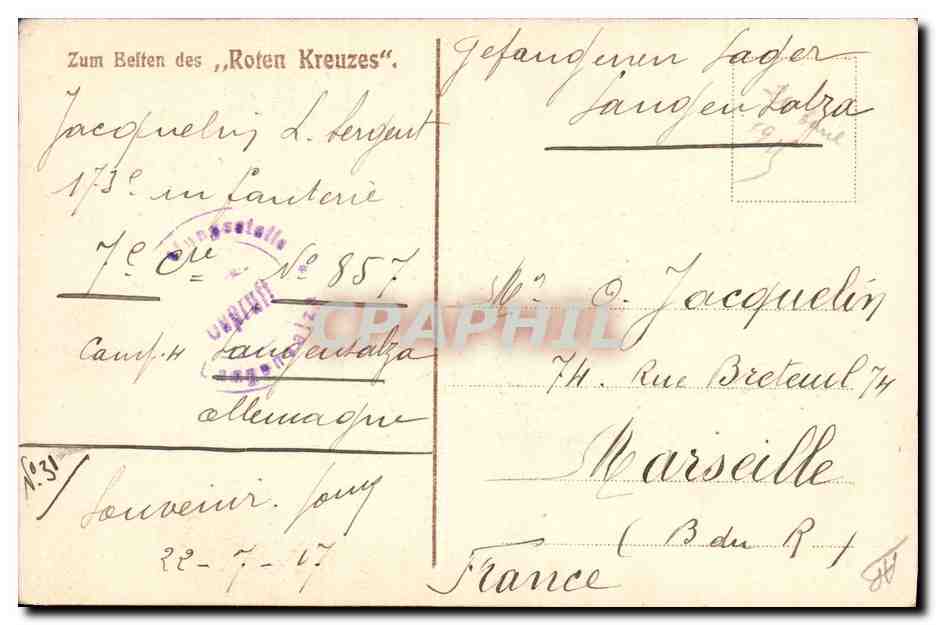 Zum Besten des „Roten Kreuzes“.
Jacquelin L. Sergent
173e infanterie
7e Cie N° 857
Camp Langensalza
allemagne
N° 31
Souvenir
22-7-17
Gefangenen Lager
Langensalza
O. Jacquelin
74. Rue Breteuil 74
Marseille
(B du R)
France
Geprüft
CPAPHIL